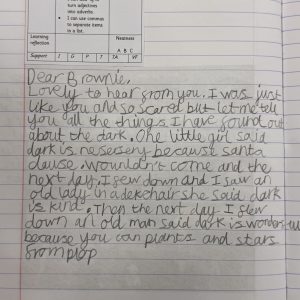 turn adjectives
into adverbs.
• I can use commas
to separate items
in a list.
Learning
reflection
Neatness
A B C
Support I G P T TA VF
Dear Brownie,
Lovely to hear srom you. I was just
like you and so scared but let me tell
you all the things I have sound out
about the dark. One little girl said
dark is nesersery because santa
clause. Wouldn't come and the
next day, I slew down and I saw an
old lady in a dekchair she said dark
is kind. Then the next day I slew
down an old man said dark is wonderful
because you can plants and stars
srom plop